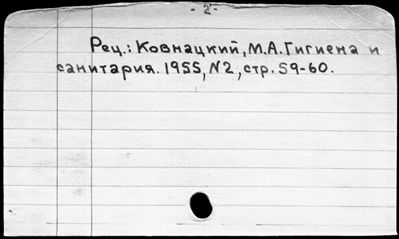 - 2 -
Рец.: Ковнацкий, М.А. Гигиена и
санитария. 1955, N2, стр. 59-60.